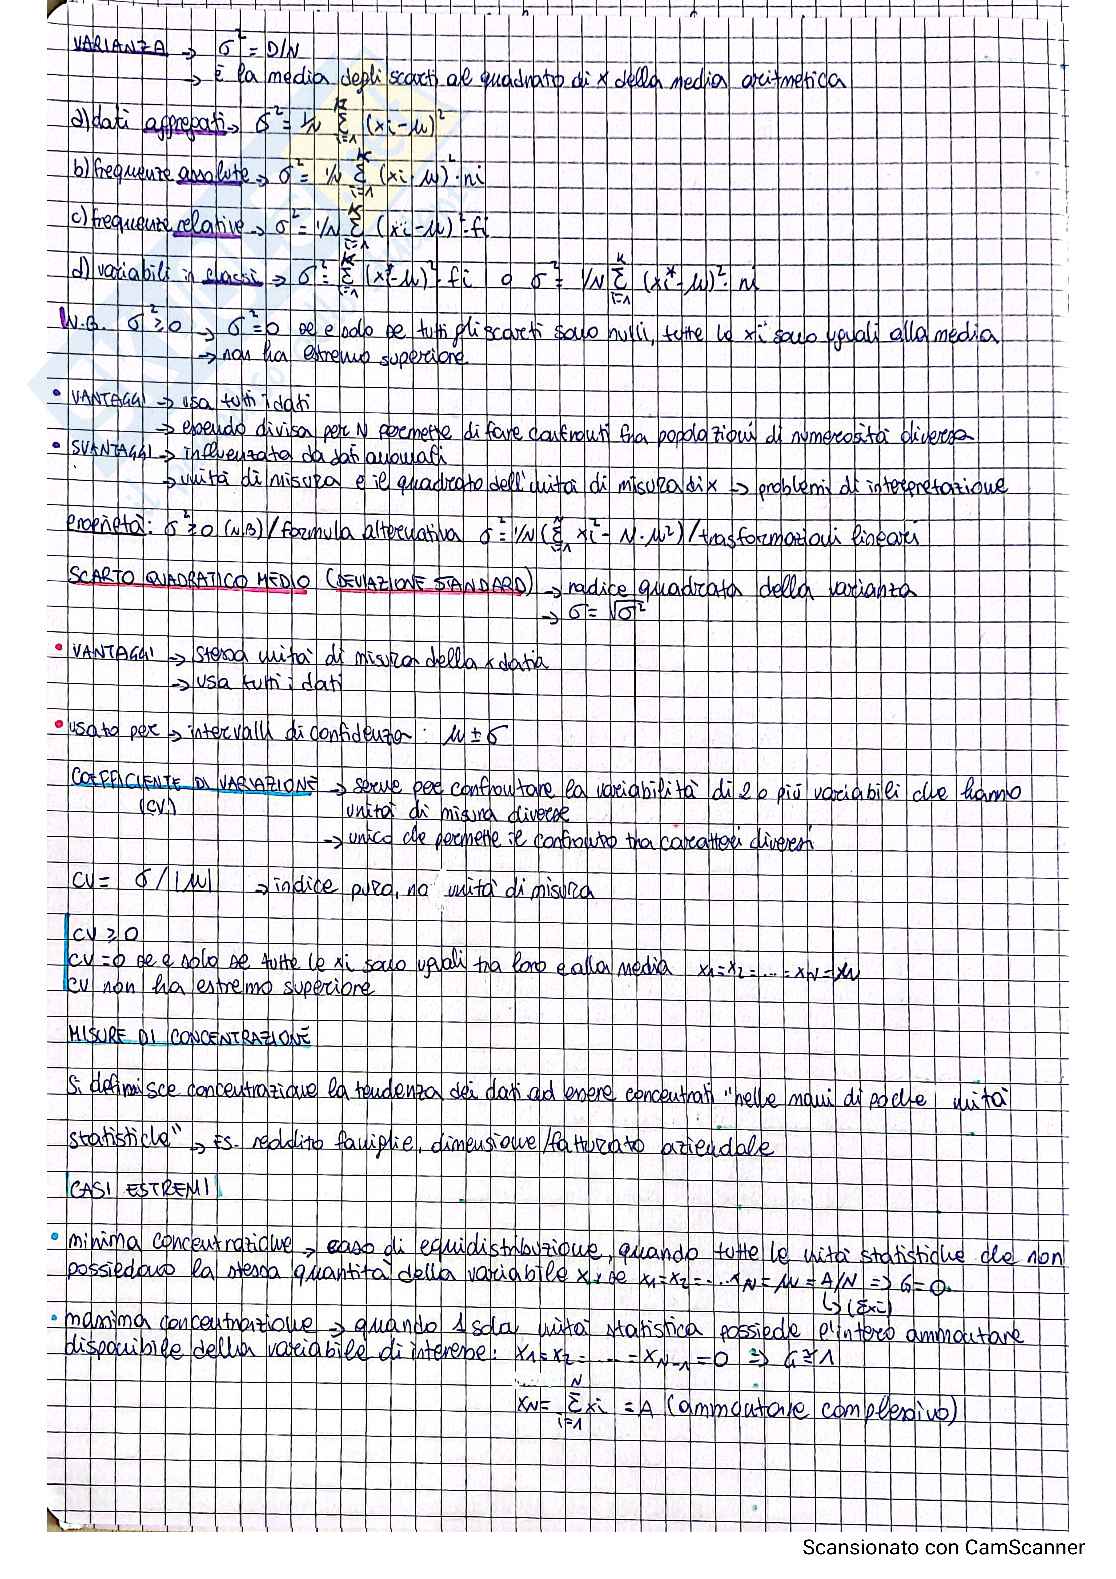 VARIANZA → σ² = D/N
→ È la media degli scarti al quadrato di x della media aritmetica
a) dati aggregati → σ² = 1/N Σ(i=1→K) (xi-μ)²
b) frequenze assolute → σ² = 1/N Σ(i=1→K) (xi-μ)²·ni
c) frequenze relative → σ² = 1/N Σ(i=1→K) (xi-μ)²·fi
d) variabili in classi → σ² = Σ(i=1→K) (xi*-μ)²·fi o σ² = 1/N Σ(i=1→K) (xi*-μ)²·ni
N.B. σ²≥0 → σ²=0 se e solo se tutti gli scarti sono nulli, tutte le xi sono uguali alla media
→ non ha estremo superiore
• VANTAGGI → usa tutti i dati
→ essendo divisa per N permette di fare confronti fra popolazioni di numerosità diverse
• SVANTAGGI → influenzata da dati anomali
→ unità di misura e il quadrato dell'unità di misura di x → problemi di interpretazione
proprietà: σ²≥0 (N.B) / formula alternativa σ² = 1/N (Σ(i=1→N) xi² - N·μ²) / trasformazioni lineari
SCARTO QUADRATICO MEDIO (DEVIAZIONE STANDARD) → radice quadrata della varianza
→ σ = √σ²
• VANTAGGI → stessa unità di misura della x data
→ usa tutti i dati
• usato per → intervalli di confidenza: μ ± σ
COEFFICIENTE DI VARIAZIONE → serve per confrontare la variabilità di 2 o più variabili che hanno
(CV) unità di misura diverse
→ unico che permette il confronto tra caratteri diversi
CV = σ/|μ| → indice puro, no unità di misura
CV ≥ 0
CV = 0 se e solo se tutte le xi sono uguali tra loro e alla media x1=x2=....=xN=μ
CV non ha estremo superiore
MISURE DI CONCENTRAZIONE
Si definisce concentrazione la tendenza dei dati ad essere concentrati "nelle mani di poche unità
statistiche" → Es. reddito famiglie, dimensione/fatturato aziendale
CASI ESTREMI
• minima concentrazione → caso di equidistribuzione, quando tutte le unità statistiche che non
possiedono la stessa quantità della variabile x, se x1=x2=....xN=μ=A/N ⇒ G=0.
↳(Σxi)
• massima concentrazione → quando 1 sola unità statistica possiede l'intero ammontare
disponibile della variabile di interesse: x1=x2=....=xN-1=0 ⇒ G≅1
xN = Σ(i=1→N) xi = A (ammontare complessivo)
Scansionato con CamScanner